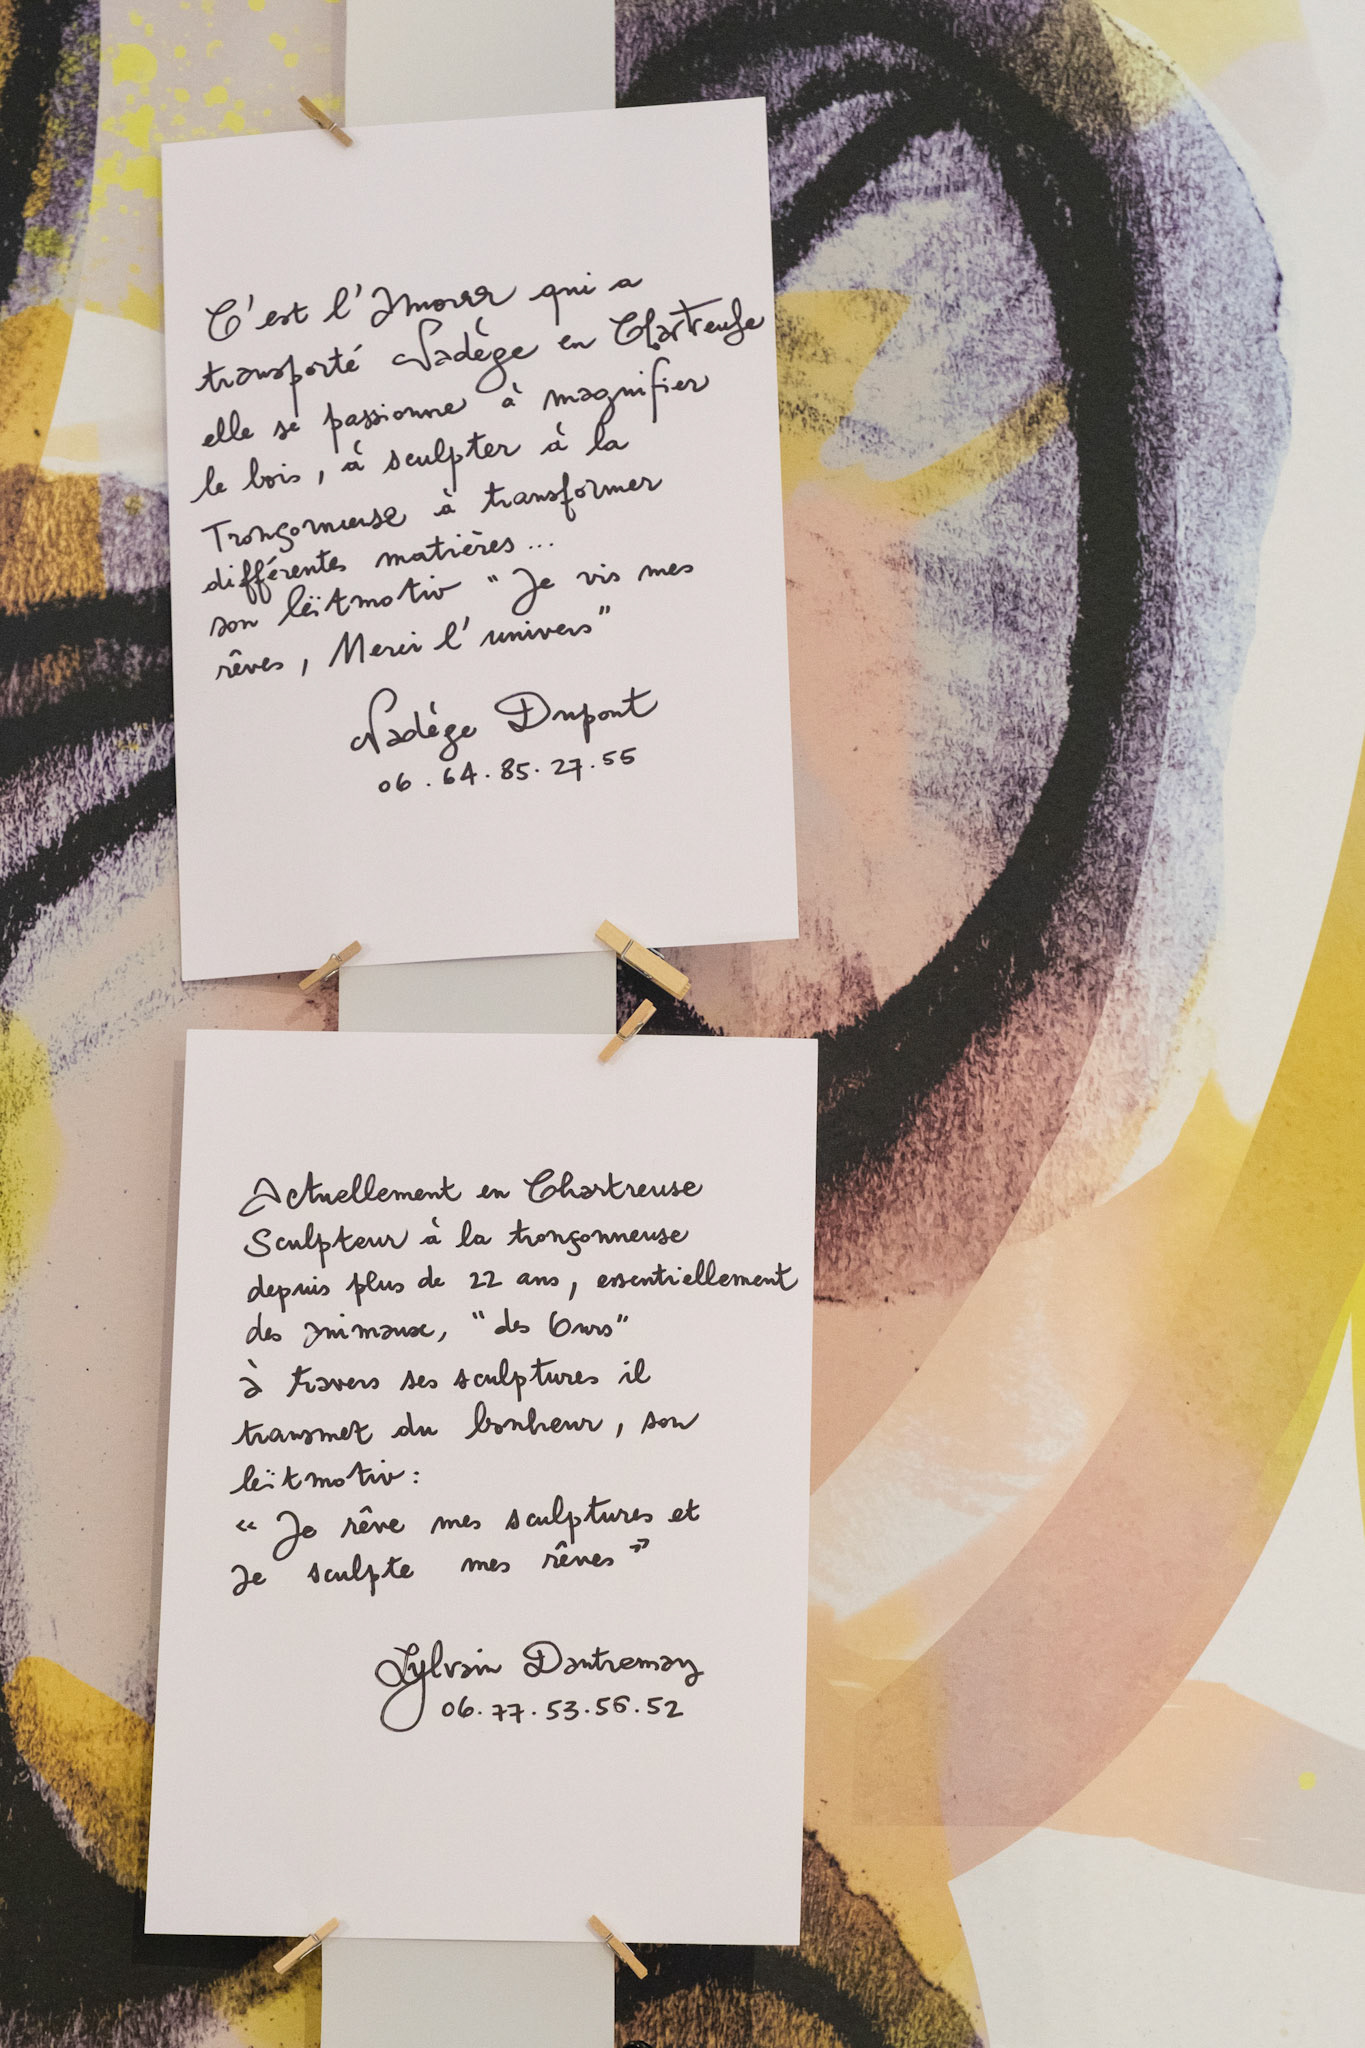 C'est l'Amour qui a
transporté Nadège en Chartreuse
elle se passionne à magnifier
le bois, à sculpter à la
Tronçonneuse à transformer
différentes matières...
son leïtmotiv "Je vis mes
rêves, Merci l'univers"
Nadège Dupont
06.64.85.27.55
Actuellement en Chartreuse
Sculpteur à la tronçonneuse
depuis plus de 22 ans, essentiellement
des animaux, "des Ours"
à travers ses sculptures il
transmet du bonheur, son
leïtmotiv:
« Je rêve mes sculptures et
Je sculpte mes rêves »
Sylvain Dautremay
06.77.53.56.52